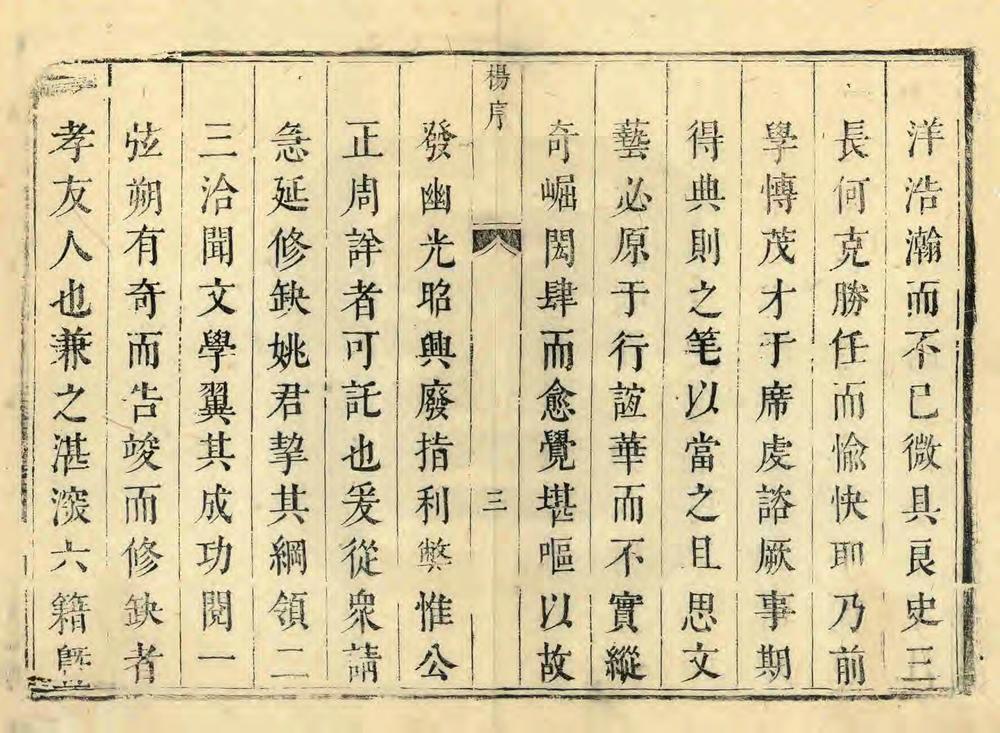 洋浩瀚而不已微具良史三
長何克勝任而愉快耶乃前
學慱茂才于席虔諮厥事期
得典則之笔以當之且思文
藝必原于行誼華而不實縱
奇崛閎肆而愈覺堪嘔以故
楊序
三
發幽光昭興廢指利弊惟公
正周詳者可託也爰從衆請
急延修缺姚君挈其綱領二
三洽聞文學翼其成功閱一
弦朔有奇而告竣而修缺者
孝友人也兼之湛深六籍